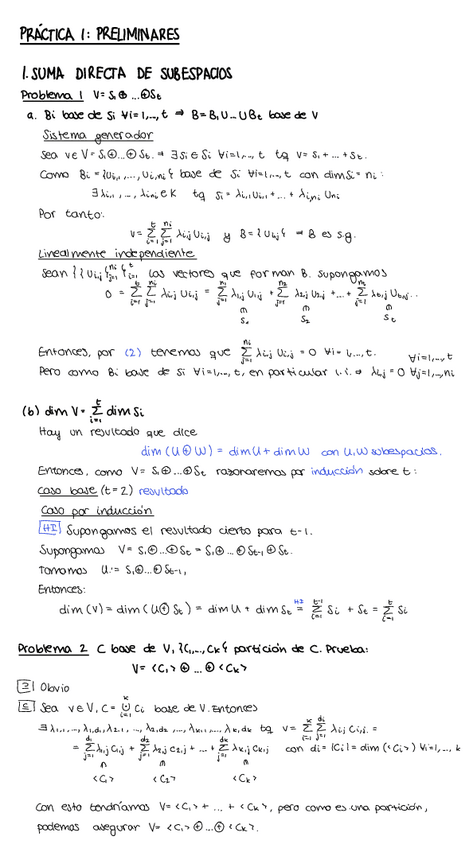 PRÁCTICA 1: PRELIMINARES
1. SUMA DIRECTA DE SUBESPACIOS
Problema 1 V = S₁ ⊕ ... ⊕ Sₜ
a. Bi base de Si ∀i=1,...,t ⇒ B = B₁ ∪ ... ∪ Bₜ base de V
Sistema generador
Sea v ∈ V = S₁ ⊕ ... ⊕ Sₜ ⇒ ∃ si ∈ Si ∀i=1,...,t tq v = s₁ + ... + sₜ.
Como Bi = {u_{i,1}, ..., u_{i,ni}} base de Si ∀i=1,...,t con dim Si = ni :
∃ λ_{i,1}, ..., λ_{i,ni} ∈ K tq si = λ_{i,1} u_{i,1} + ... + λ_{i,ni} u_{ni}
Por tanto:
v = ∑_{i=1}^{t} ∑_{j=1}^{ni} λ_{i,j} u_{i,j} y B = {u_{i,j}} ⇒ B es s.g.
Linealmente independiente
Sean {{u_{i,j}}_{j=1}^{ni}}_{i=1}^{t} los vectores que forman B. Supongamos
0 = ∑_{i=1}^{t} ∑_{j=1}^{ni} λ_{i,j} u_{i,j} = ∑_{j=1}^{n₁} λ_{1,j} u_{1,j} + ∑_{j=1}^{n₂} λ_{2,j} u_{2,j} + ... + ∑_{j=1}^{nₜ} λ_{t,j} u_{t,j} .
∈ ∈ ∈
S₁ S₂ Sₜ
Entonces, por (2) tenemos que ∑_{j=1}^{ni} λ_{i,j} u_{i,j} = 0 ∀i=1,...,t.
Pero como Bi base de Si ∀i=1,...,t, en particular l.i. ⇒ λ_{i,j} = 0 ∀i=1,...,t ∀j=1,...,ni
(b) dim V = ∑_{i=1}^{t} dim Si
Hay un resultado que dice
dim (U ⊕ W) = dim U + dim W con U, W subespacios.
Entonces, como V = S₁ ⊕ ... ⊕ Sₜ razonaremos por inducción sobre t :
Caso base (t = 2) resultado
Caso por inducción
HI Supongamos el resultado cierto para t-1.
Supongamos V = S₁ ⊕ ... ⊕ Sₜ = S₁ ⊕ ... ⊕ Sₜ₋₁ ⊕ Sₜ.
Tomamos U := S₁ ⊕ ... ⊕ Sₜ₋₁,
Entonces:
dim (V) = dim (U ⊕ Sₜ) = dim U + dim Sₜ =^{HI} ∑_{i=1}^{t-1} Si + Sₜ = ∑_{i=1}^{t} Si
Problema 2 C base de V, {C₁,...,Cₖ} partición de C. Prueba:
V = <C₁> ⊕ ... ⊕ <Cₖ>
⊇ Obvio
⊆ Sea v ∈ V, C = ∪_{i=1}^{k} Ci base de V. Entonces
∃ λ_{1,1}, ..., λ_{1,d₁}, λ_{2,1}, ..., λ_{2,d₂}, ..., λ_{k,1}, ..., λ_{k,dₖ} tq v = ∑_{i=1}^{k} ∑_{j=1}^{di} λ_{i,j} c_{i,j} =
= ∑_{j=1}^{d₁} λ_{1,j} c_{1,j} + ∑_{j=1}^{d₂} λ_{2,j} c_{2,j} + ... + ∑_{j=1}^{dₖ} λ_{k,j} c_{k,j} con di = |Ci| = dim (<Ci>) ∀i=1,...,k
∈ ∈ ∈
<C₁> <C₂> <Cₖ>
Con esto tendríamos V = <C₁> + ... + <Cₖ>, pero como es una partición,
podemos asegurar V = <C₁> ⊕ ... ⊕ <Cₖ>.